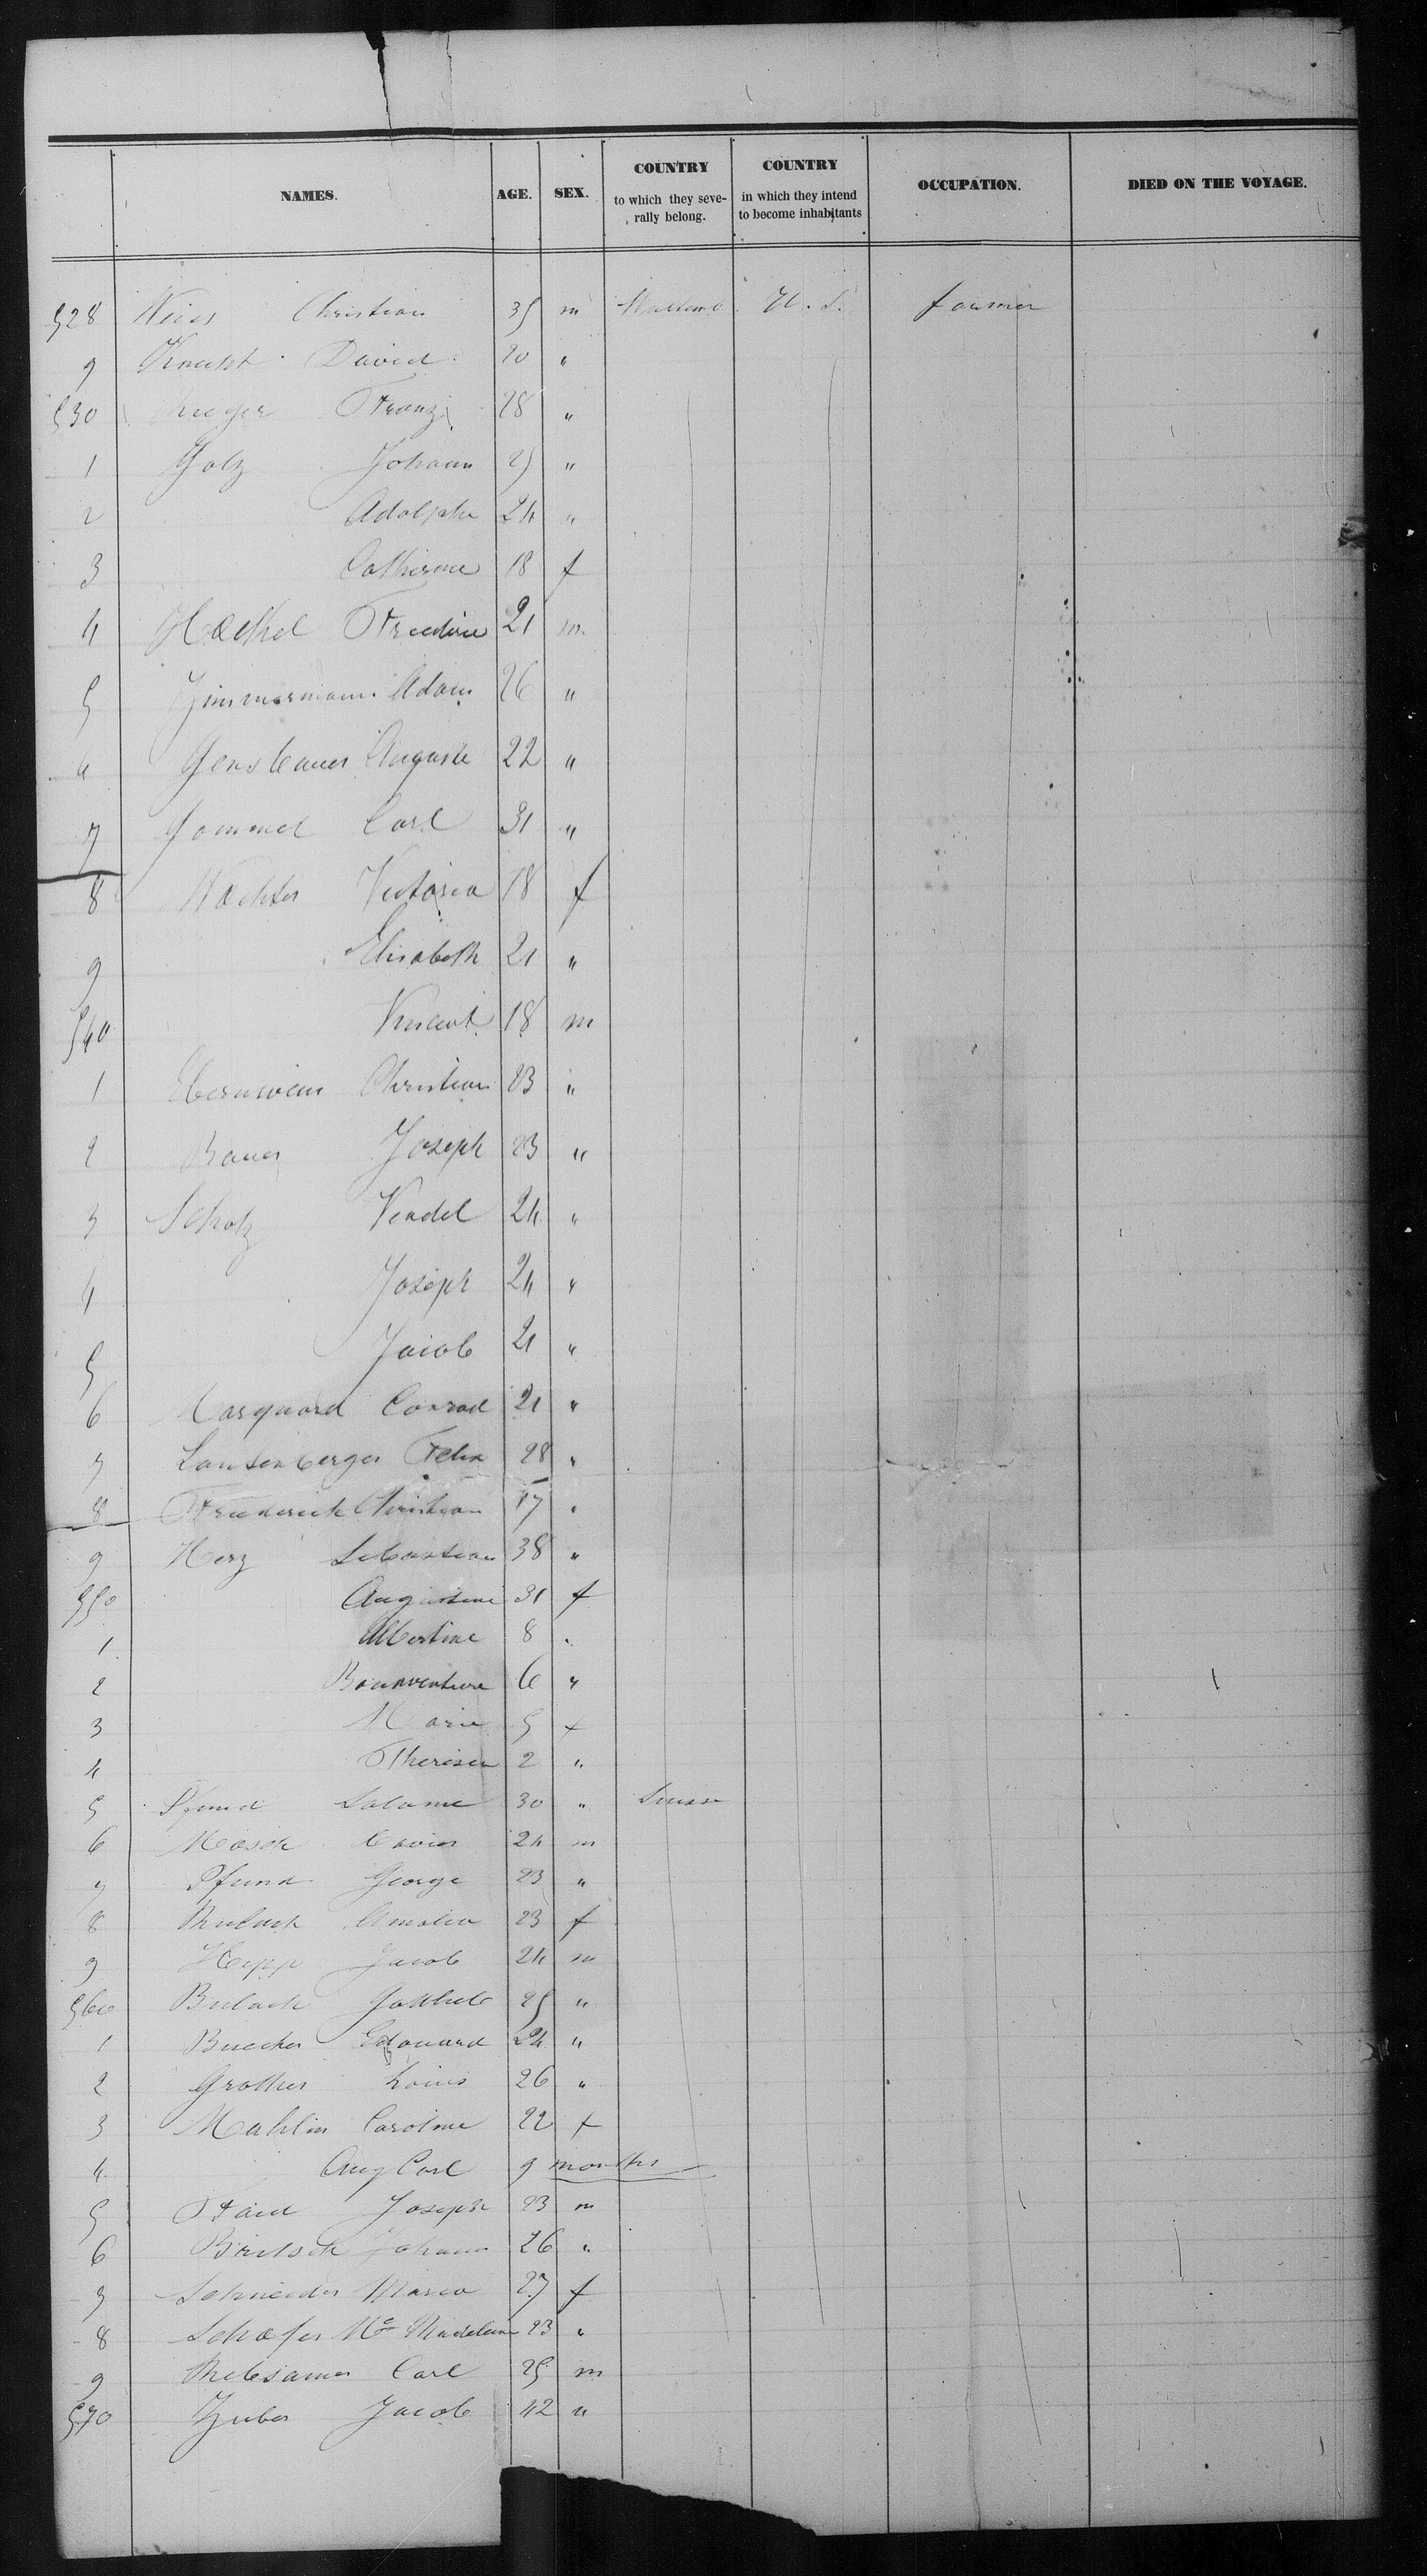 NAMES. AGE. SEX. COUNTRY to which they seve- rally belong. COUNTRY in which they intend to become inhabitants OCCUPATION. DIED ON THE VOYAGE.
528 Christian 35 m U. S. farmer
9 Knecht David 20 "
530 Franz 28 "
1 Golz Johann 25 "
2 Adolphe 24 "
3 Catherine 18 f
4 Hackel 21 m
5 Zimmermann Adam 26 "
6 Auguste 22 "
7 Gommel Carl 31 "
8 Wachter Victoria 18 f
9 Elisabeth 21 "
540 Vincent 18 m
1 Christian 23 "
2 Bauer Joseph 23 "
3 Scholz Vendel 24 "
4 Joseph 24 "
5 Jacob 21 "
6 Marquard Conrad 21 "
7 Lautenberger Felix 28 "
8 Frederick Christian 17 "
9 Herz Sebastian 38 "
550 Augustine 31 f
1 Albertine 8 "
2 Bonaventure 6 "
3 Marie 5 f
4 Theresia 2 "
5 Pfund Salome 30 " Suisse
6 Xavier 24 m
7 Pfund George 23 "
8 Amalia 23 f
9 Hepp Jacob 24 m
560 Gottlieb 25 "
1 Buecher Edouard 24 "
2 Grather Louis 26 "
3 Mahlin Caroline 22 f
4 Aug Carl 9 months
5 Joseph 23 m
6 Britsch Johann 26 "
7 Schneider Maria 27 f
8 Schafer Me Madeleine 23 "
9 Carl 25 m
570 Zuber Jacob 42 "